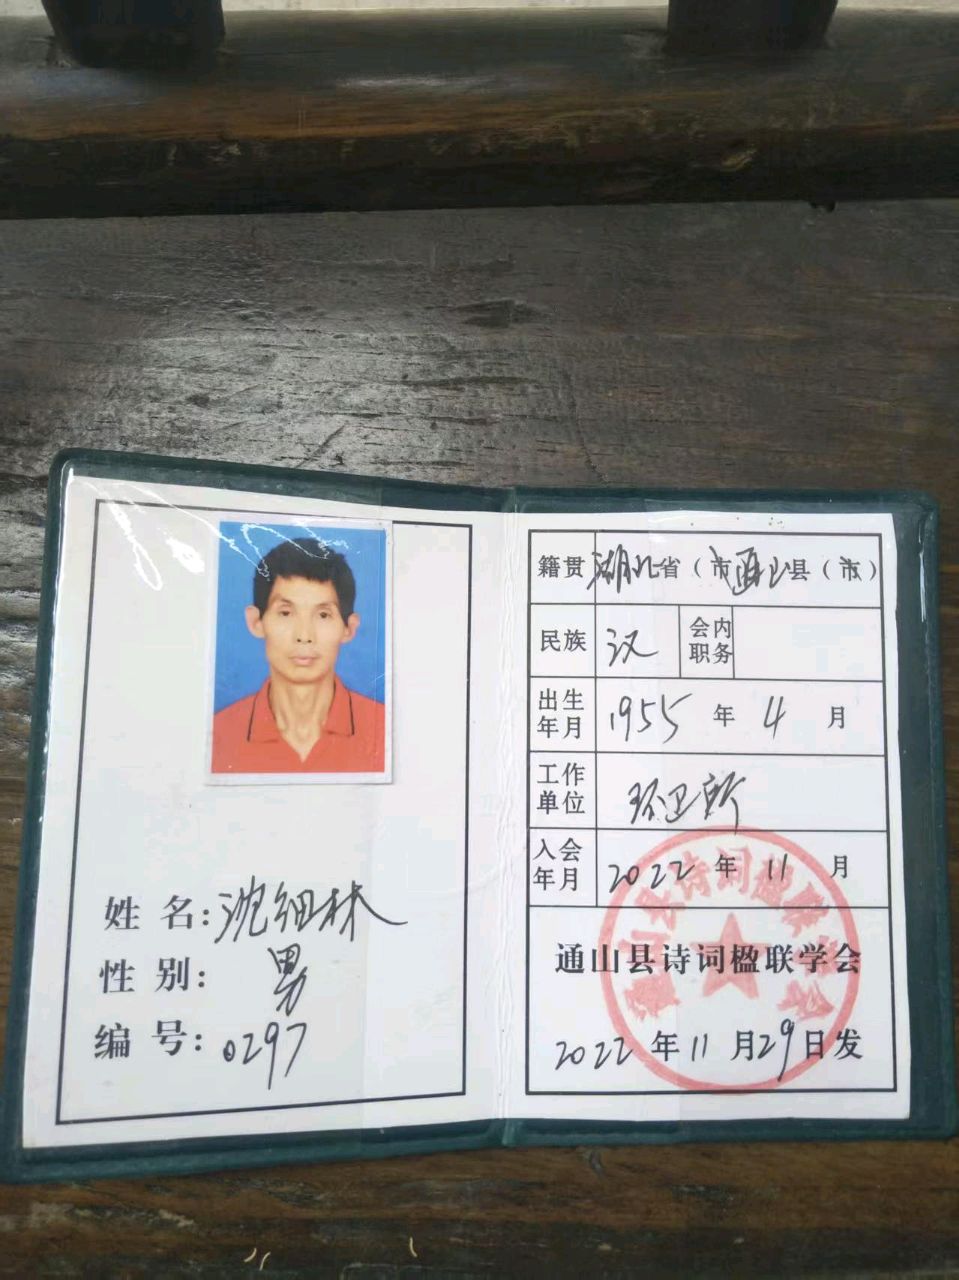 姓 名: 沈细林
性 别: 男
编 号: 0297
籍贯 湖北省（市 通山县（市）
民族 汉 会内职务
出生年月 1955 年 4 月
工作单位 环卫所
入会年月 2022 年 11 月
通山县诗词楹联学会
2022 年 11 月 29 日 发
通山县诗词楹联学会